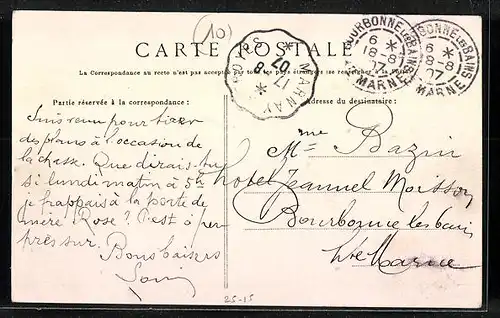 (10)
CARTE POSTALE
La Correspondance au recto n'est pas acceptée par tous les pays étrangers (se renseigner à la Poste)
Partie réservée à la correspondance :
Suis venu pour tirer
des plans à l'occasion de
la chasse. Que dirais-tu
si lundi matin à 5h
je frappais à la porte de
mère Rose ? C'est à peu
près sur.
Bons baisers
Adresse du destinataire :
Mme Bazin
hotel Jeannel Moisson
Bourbonne les bains
Hte Marne
GRAY
17-8
07
MARNAY
BOURBONNE-LES-BAINS
6 *
18-8
07
HTE MARNE
BOURBONNE-LES-BAINS
6 *
18-8
07
MARNE
25-15